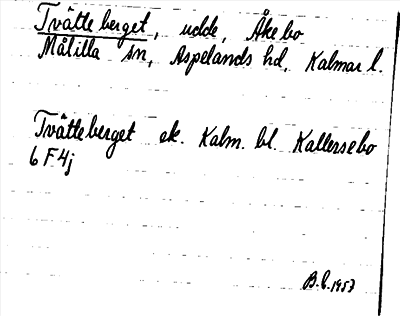 Tvätteberget, udde, Åkebo
Målilla sn, Aspelands hd, Kalmar l.
Tvätteberget ek. Kalm. bl. Kallersebo
6 F 4j
B.L. 1957